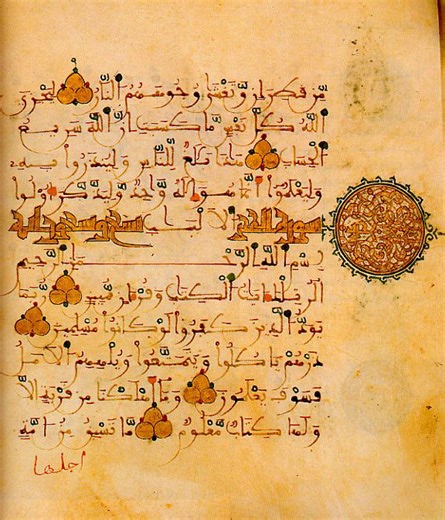 مِّن قطران وتغشى وجوههم النار ليجزي
الله كل نفس ما كسبت ان الله سريع
الحساب هذا بلغ للناس ولينذروا به
وليعلموا انما هو اله واحد وليذكر اولوا
سورة الحجر الالبب تسع وتسعون اية
بسم الله الرحمن الرحيم
الر تلك ايت الكتب وقران مبين ربما
يود الذين كفروا لو كانوا مسلمين
ذرهم ياكلوا ويتمتعوا ويلههم الامل
فسوف يعلمون وما اهلكنا من قرية الا
ولها كتاب معلوم ما تسبق من امة
اجلها